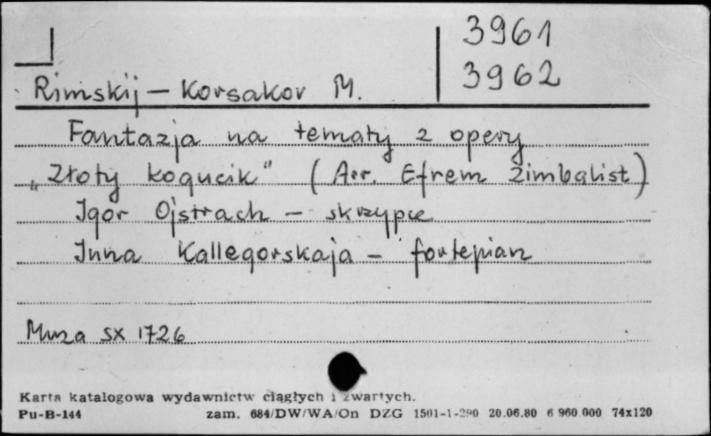 3961
3962
Rimskij - Korsakov M.
Fantazja na tematy z opery
„Złoty kogucik" (Arr. Efrem Zimbalist)
Igor Ojstrach - skrzypce
Inna Kallegorskaja - fortepian
Muza SX 1726
Karta katalogowa wydawnictw ciągłych i zwartych.
Pu-B-144 zam. 684/DW/WA/On DZG 1501-1-290 20.06.80 6 960 000 74x120